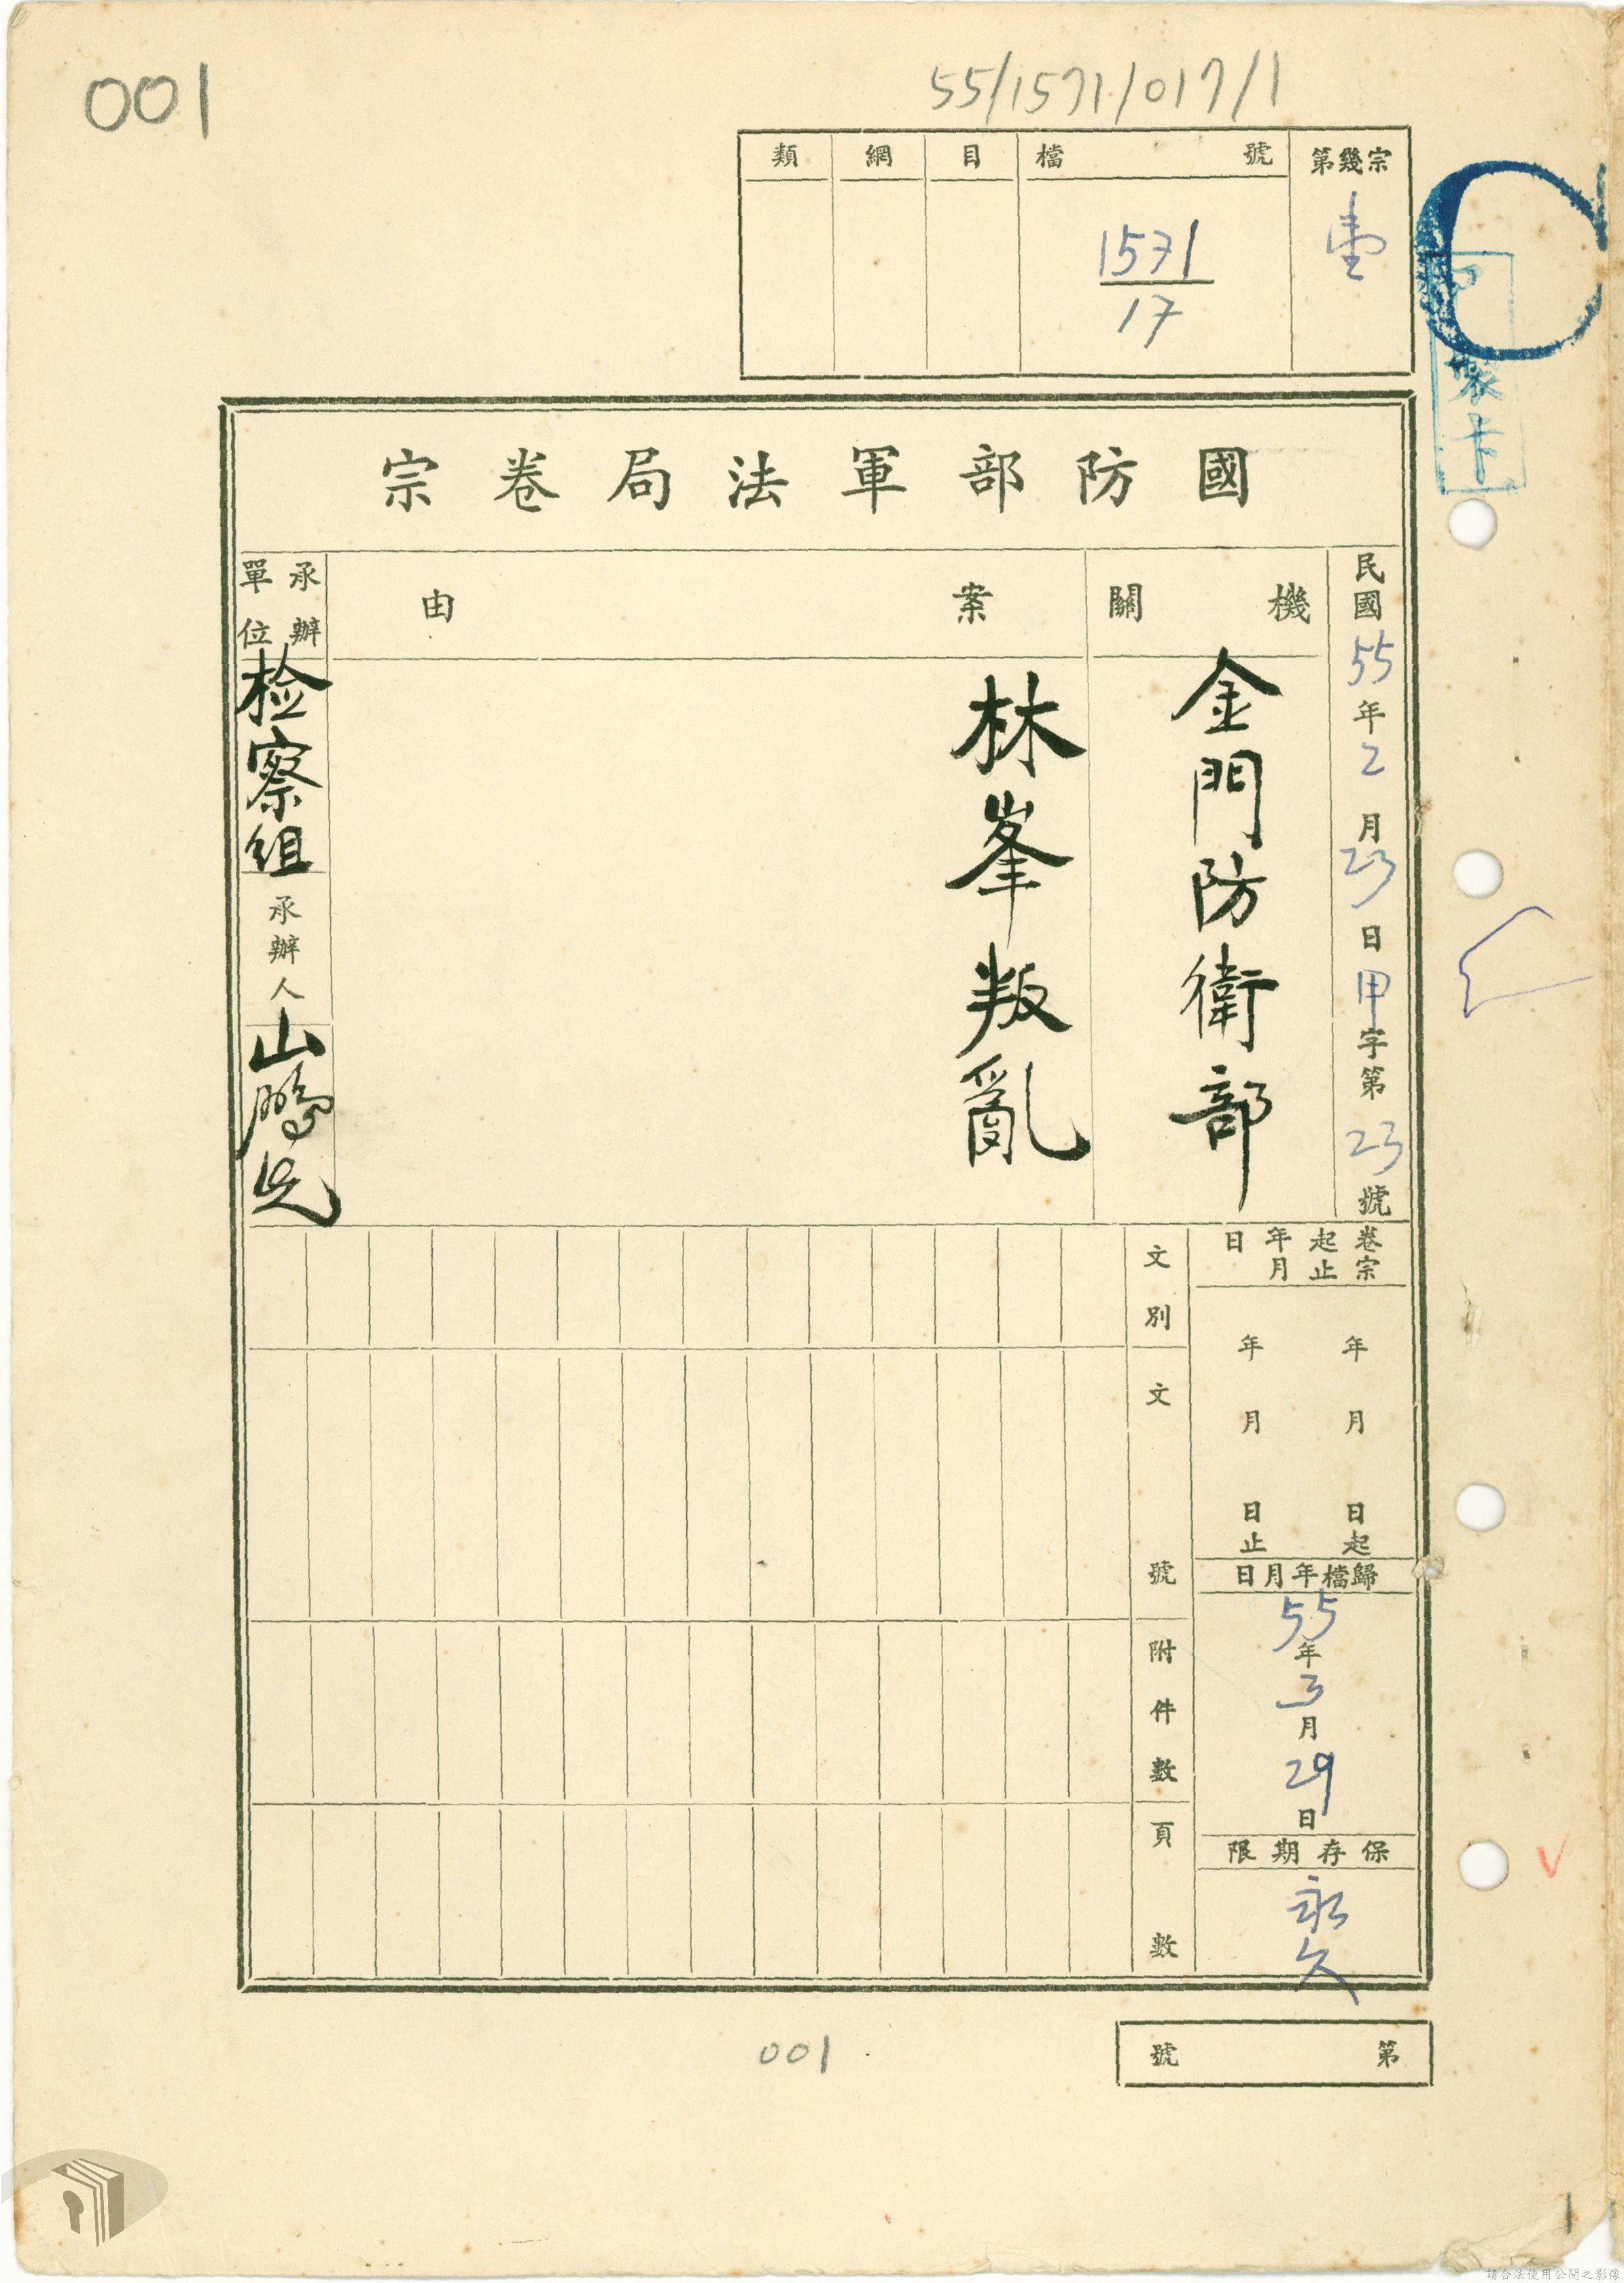 001
55/1571/017/1
第幾宗
壹
檔號
1571
17
目
綱
類
製卡
國防部軍法局卷宗
民國55年2月23日甲字第23號
機關
金門防衛部
案由
林峯叛亂
承辦單位
检察组
承辦人
山鵬
卷宗起止年月日
年月日起
年月日止
歸檔年月日
55年3月29日
保存期限
永久
文別
文號
附件數
頁數
第號
001
1
請合法使用公開之影像